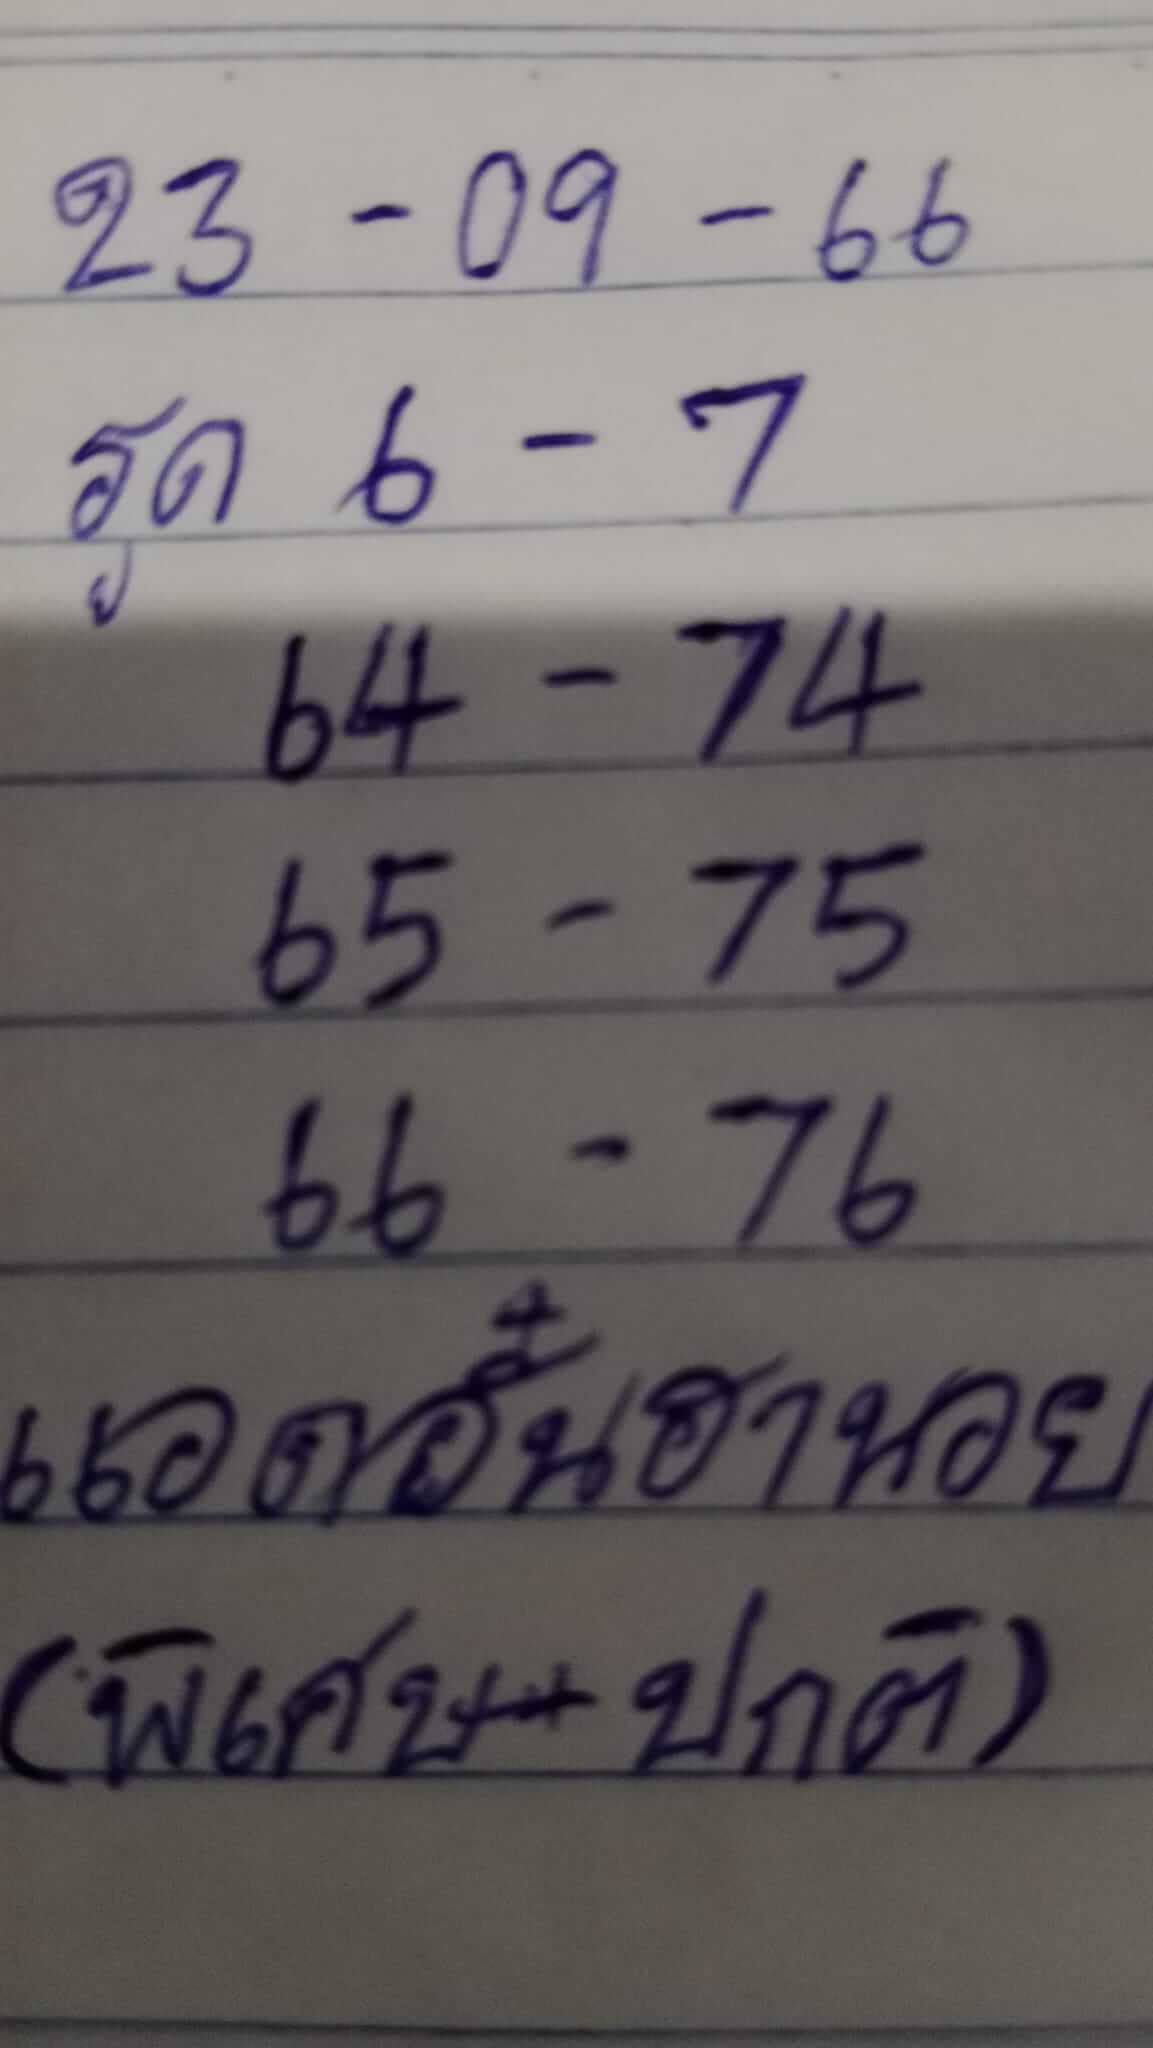 23 - 09 - 66
รูด 6 - 7
64 - 74
65 - 75
66 - 76
แอดอั๋นฮานอย
(พิเศษ + ปกติ)